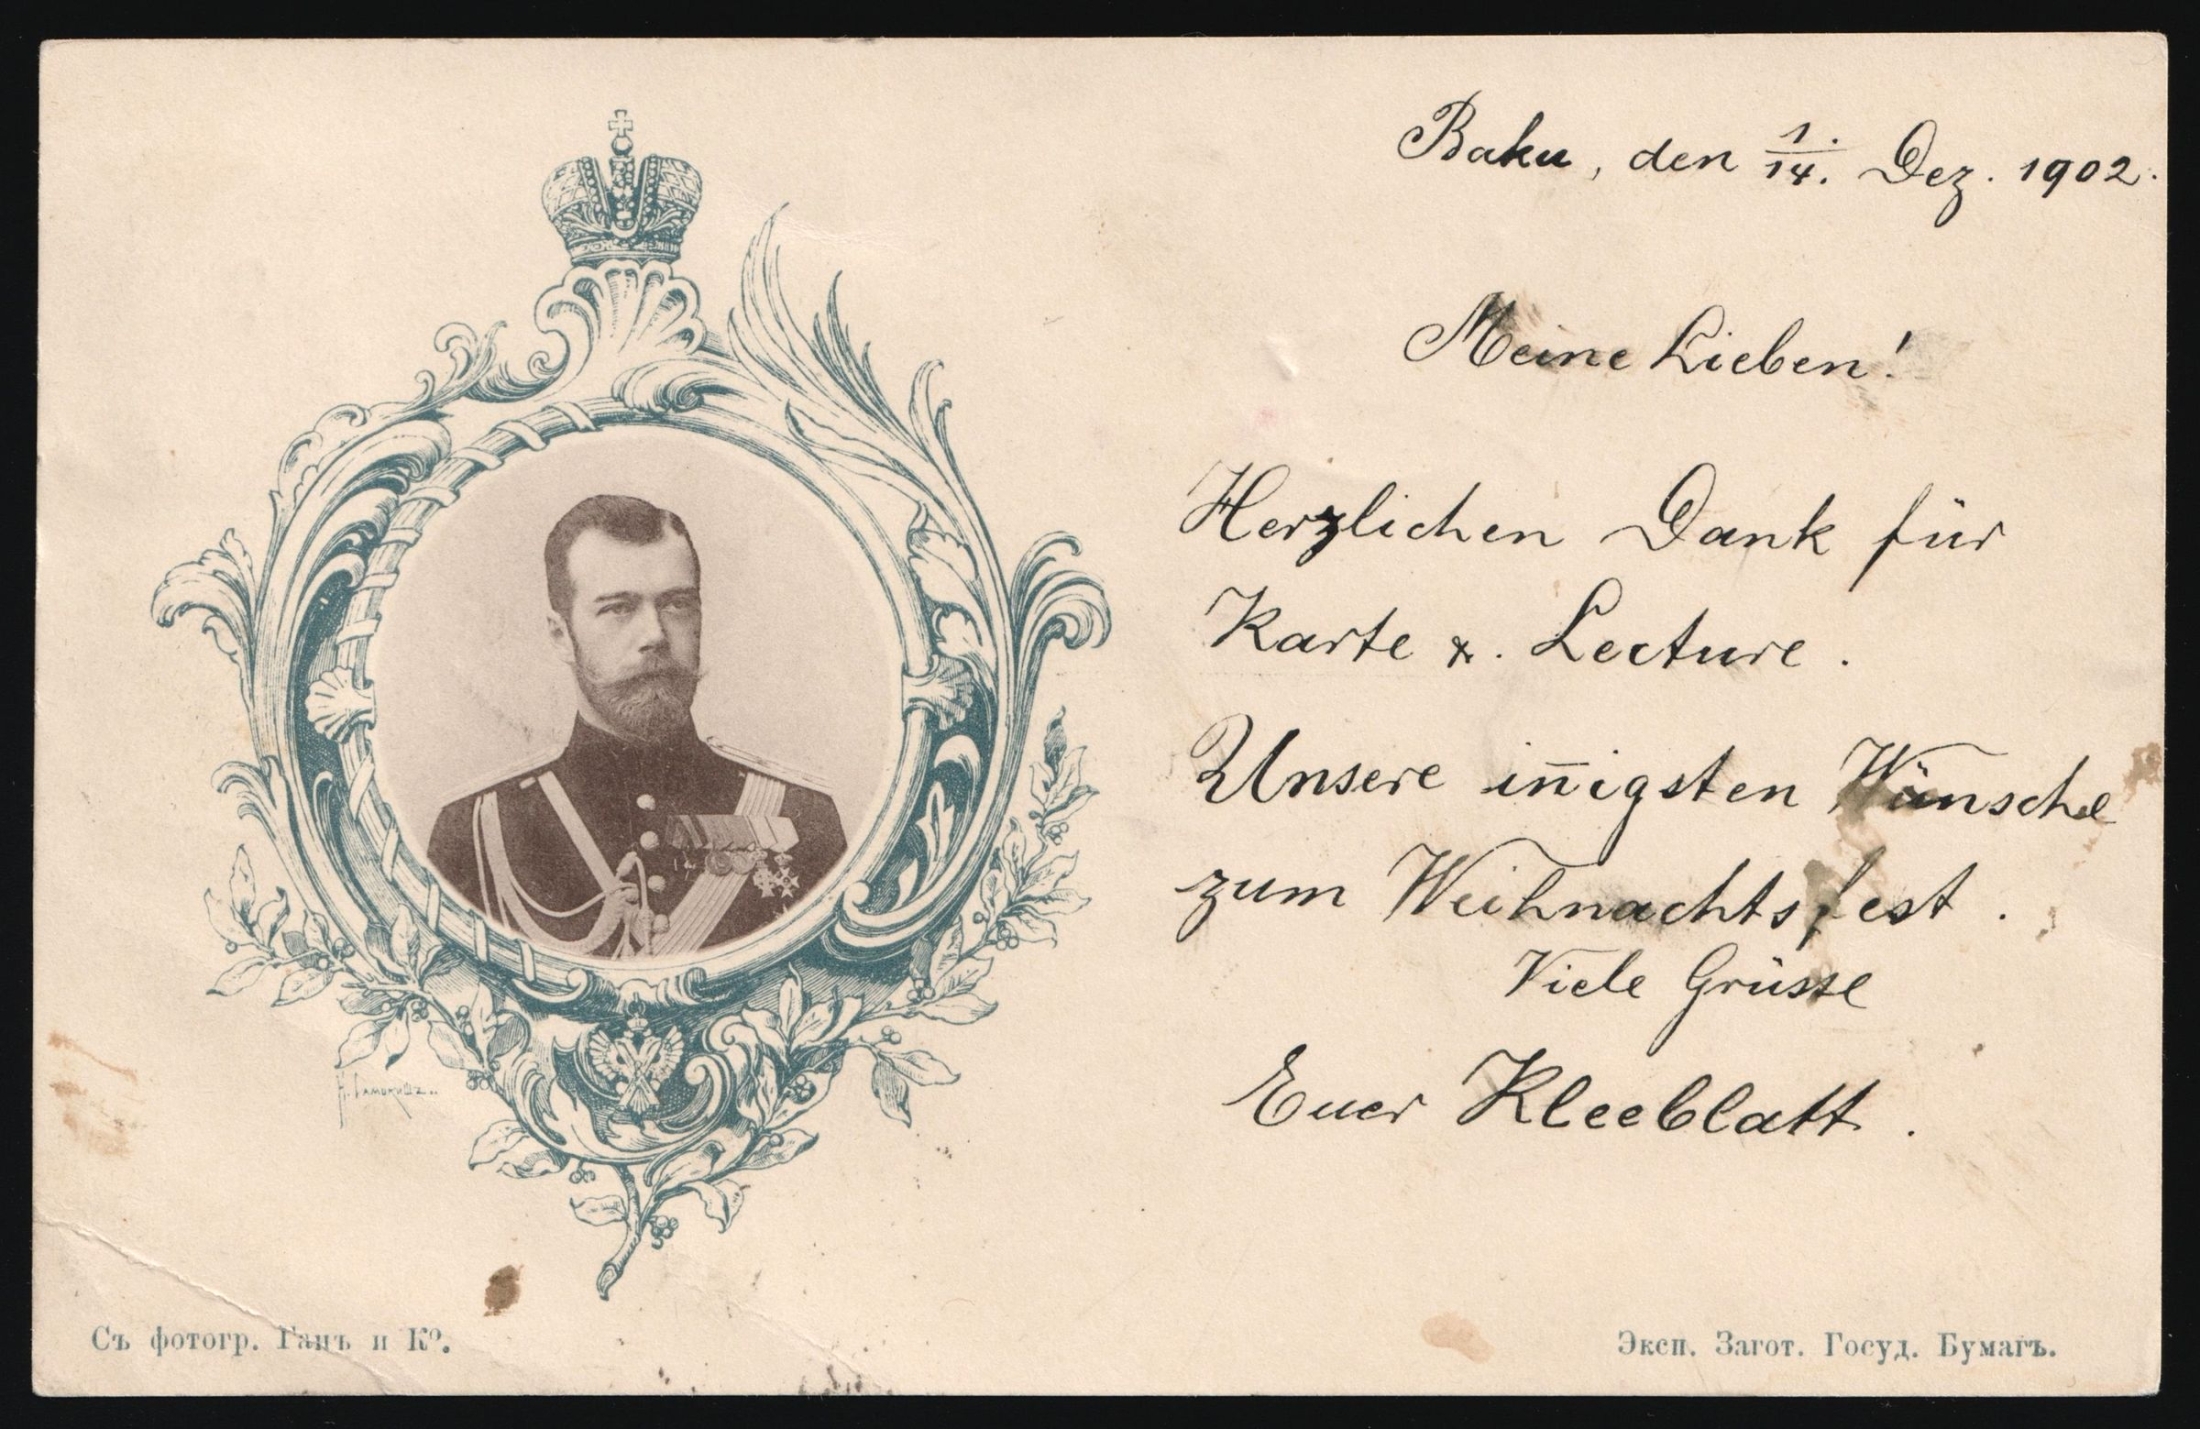 Baku, den 1./14. Dez. 1902.
Meine Lieben!
Herzlichen Dank für
Karte &. Lecture.
Unsere in̄igsten Wünsche
zum Weihnachtsfest.
Viele Grüsse
Euer Kleeblatt.
Н. Самокишъ
Съ фотогр. Ганъ и Ко.
Эксп. Загот. Госуд. Бумагъ.